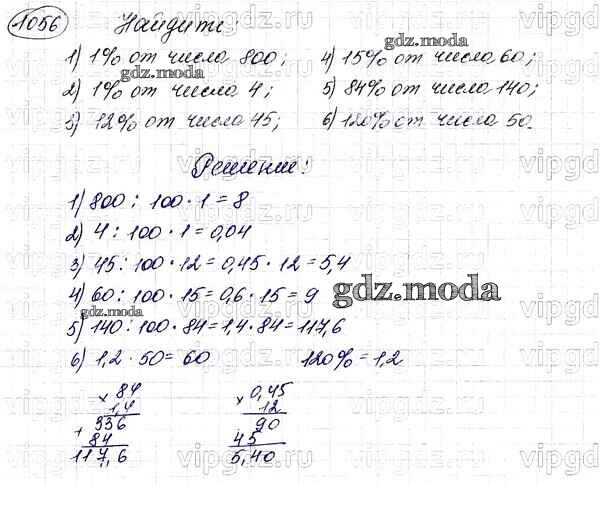 1056 Найдите:
1) 1% от числа 800; 4) 15% от числа 60;
2) 1% от числа 4; 5) 84% от числа 140;
3) 12% от числа 45; 6) 120% от числа 50.
Решение:
1) 800 : 100 · 1 = 8
2) 4 : 100 · 1 = 0,04
3) 45 : 100 · 12 = 0,45 · 12 = 5,4
4) 60 : 100 · 15 = 0,6 · 15 = 9
5) 140 : 100 · 84 = 1,4 · 84 = 117,6
6) 1,2 · 50 = 60 120% = 1,2
× 84 × 0,45
1,4 12
336 90
+ 84 45
117,6 5,40
gdz.moda
gdz.moda
gdz.moda
gdz.moda
vipgdz.ru